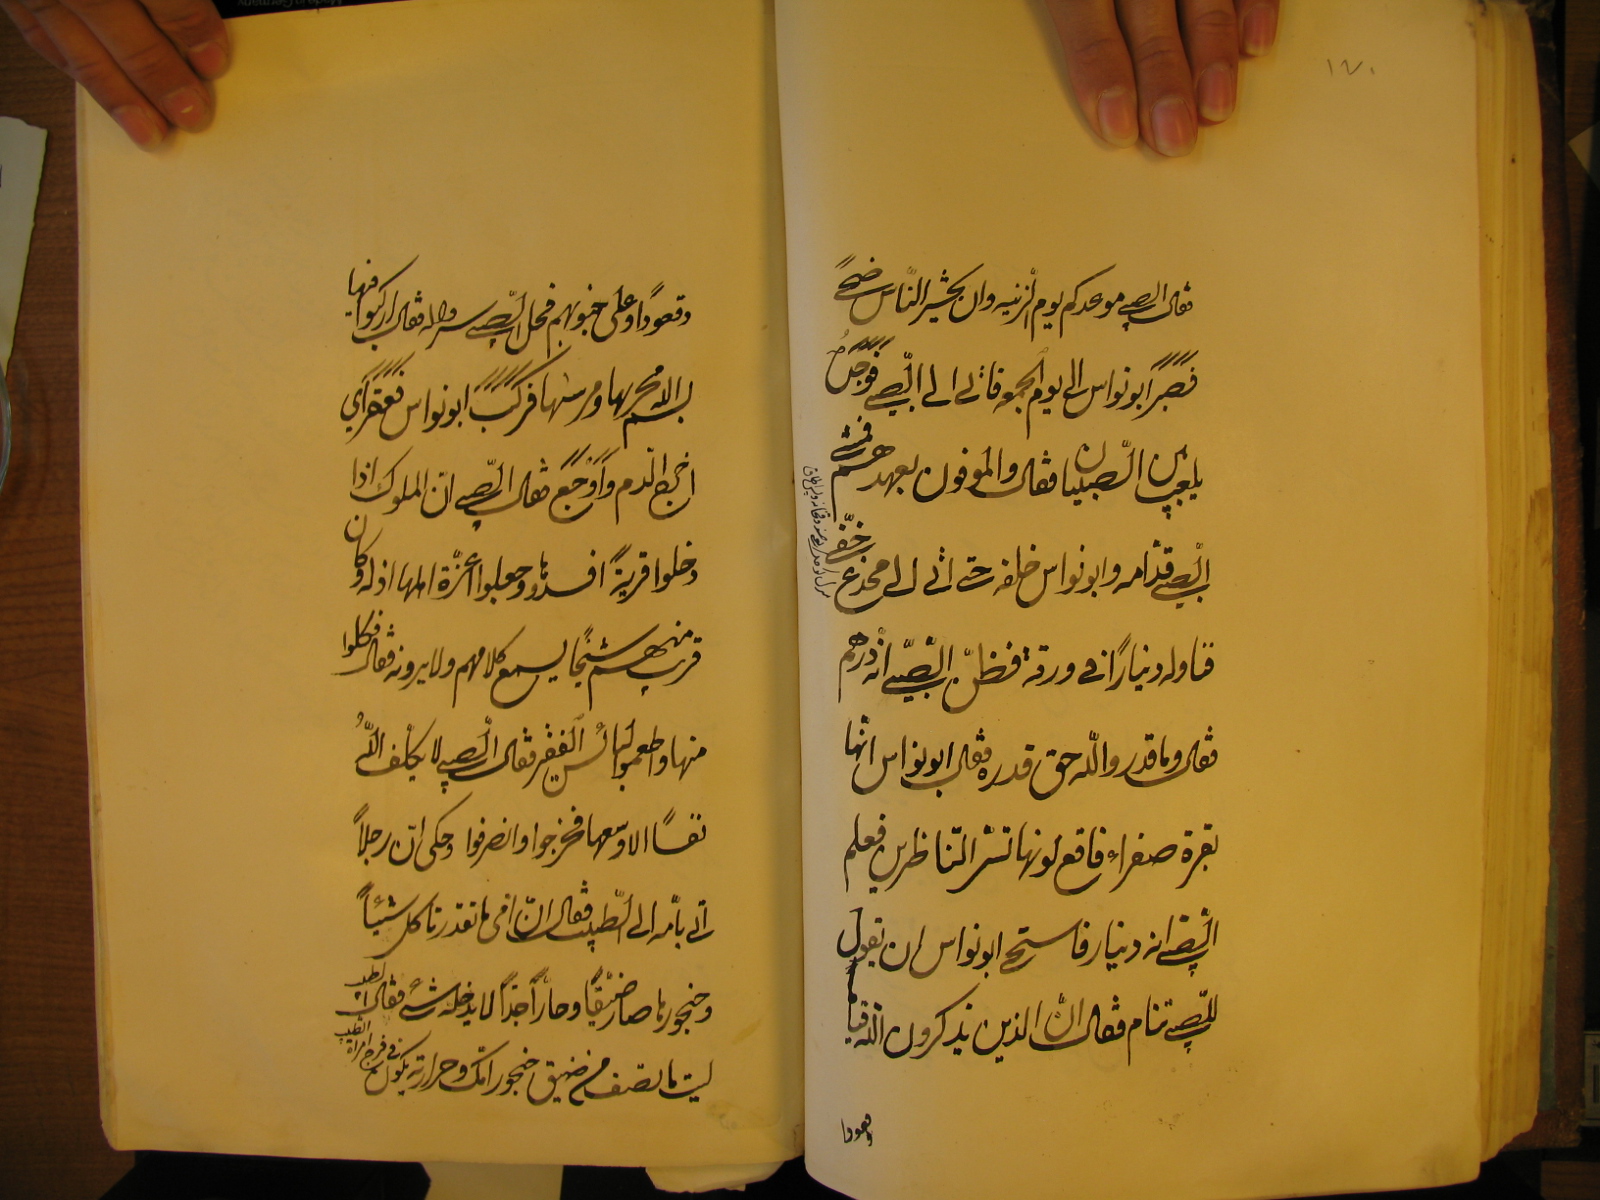 ١٢٠
فقال الصبي موعدكم يوم الزينة وان يحشر الناس ضحىً
فصبر ابو نواس الى يوم الجمعه فاتى الى الصبي فوجده
يلعب بين الصبيان فقال والموفون بعهدهم فمشى
الصبي قدّامه وابو نواس خلفه حتى اتى الى مخدع خفي
فناوله ديناراً فى ورقة فظنّ الصّبى انه درهم
فقال وما قدروا الله حق قدره فقال ابو نواس انها
بقرة صفراء فاقع لونها تسر النّاظرين فعلم
الصّبى انه دينار فاستحى ابو نواس ان يقول
للصّبى تنام فقال انّ الذين يذكرون الله قياما
وقعودا
وقعودًا وعلى جنوبهم فحل الصّبي سرواله فقال اركبوا فيها
بسم الله مجريها ومرسيها فركب ابو نواس فعقره اي
اخرج الدم واوجع فقال الصّبي انّ الملوك اذا
دخلوا قرية افسدوها وجعلوا اعزّة اهلها اذله وكان
قرب منهم شيخًا يسمع كلامهم ولا يرونه فقال فكلوا
منها واطعموا البائس الفقير فقال الصّبي لا يكلف اللهُ
نفسًا الا وسعها فخرجوا وانصرفوا وحكى انّ رجلاً
اتى بامّه الى الطّبيب فقال انّ امى ما تقدر تاكل شيئاً
وحنجورها صار ضيّقًا وحارّاً جدّاً لا يدخله شئ فقال الطبيب
ليت ما تصف من ضيق حنجور امّك وحرارته يكون في فرج امراة الطبيب